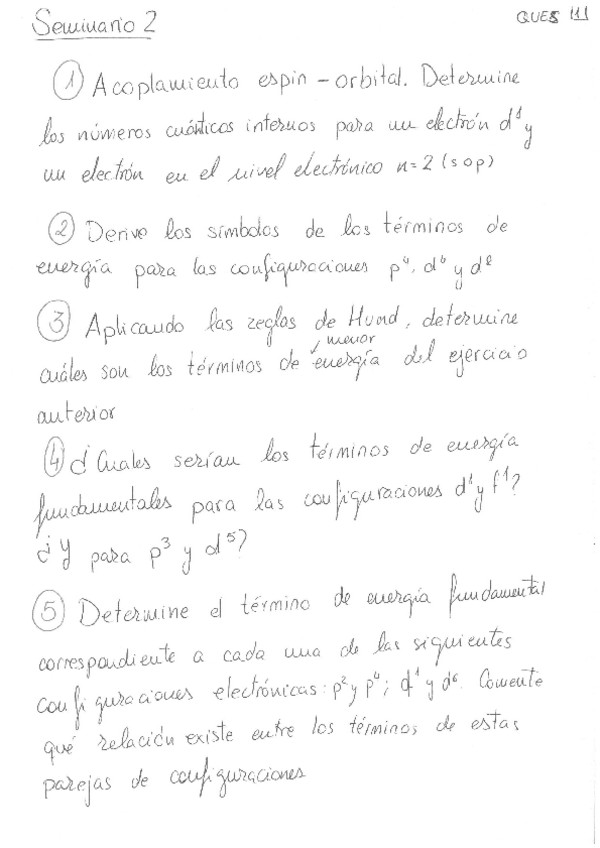 Seminario 2
QUES 111
① Acoplamiento espin - orbital. Determine
los números cuánticos internos para un electrón d¹ y
un electrón en el nivel electrónico n=2 (s o p)
② Derive los símbolos de los términos de
energía para las configuraciones p⁴, d⁶ y d²
③ Aplicando las reglas de Hund, determine
cuáles son los términos de menor energía del ejercicio
anterior
④ ¿Cuales serían los términos de energía
fundamentales para las configuraciones d¹ y f¹?
¿Y para p³ y d⁵?
⑤ Determine el término de energía fundamental
correspondiente a cada una de las siguientes
configuraciones electrónicas: p² y p⁴; d¹ y d⁶. Comente
qué relación existe entre los términos de estas
parejas de configuraciones